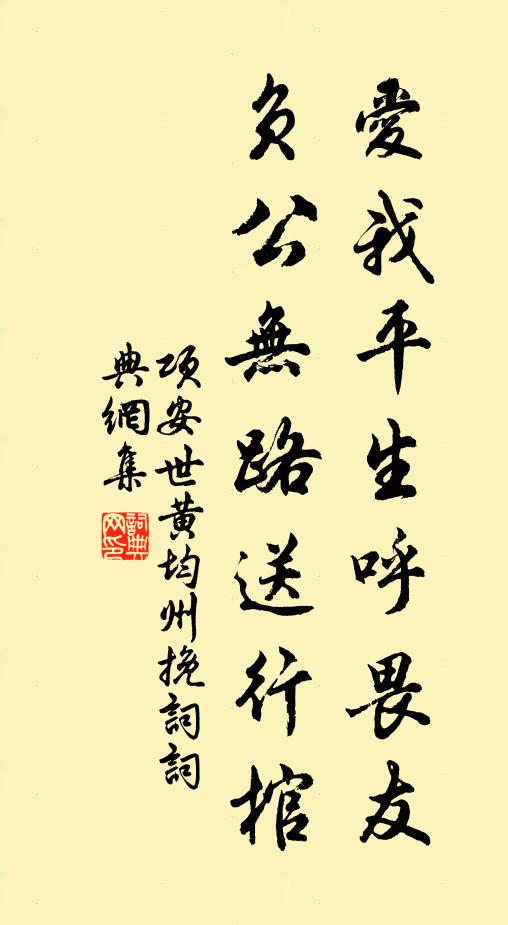 愛我平生呼畏友
負公無路送行棺
項安世黃均州挽詞詞
典網集
詞典
網印